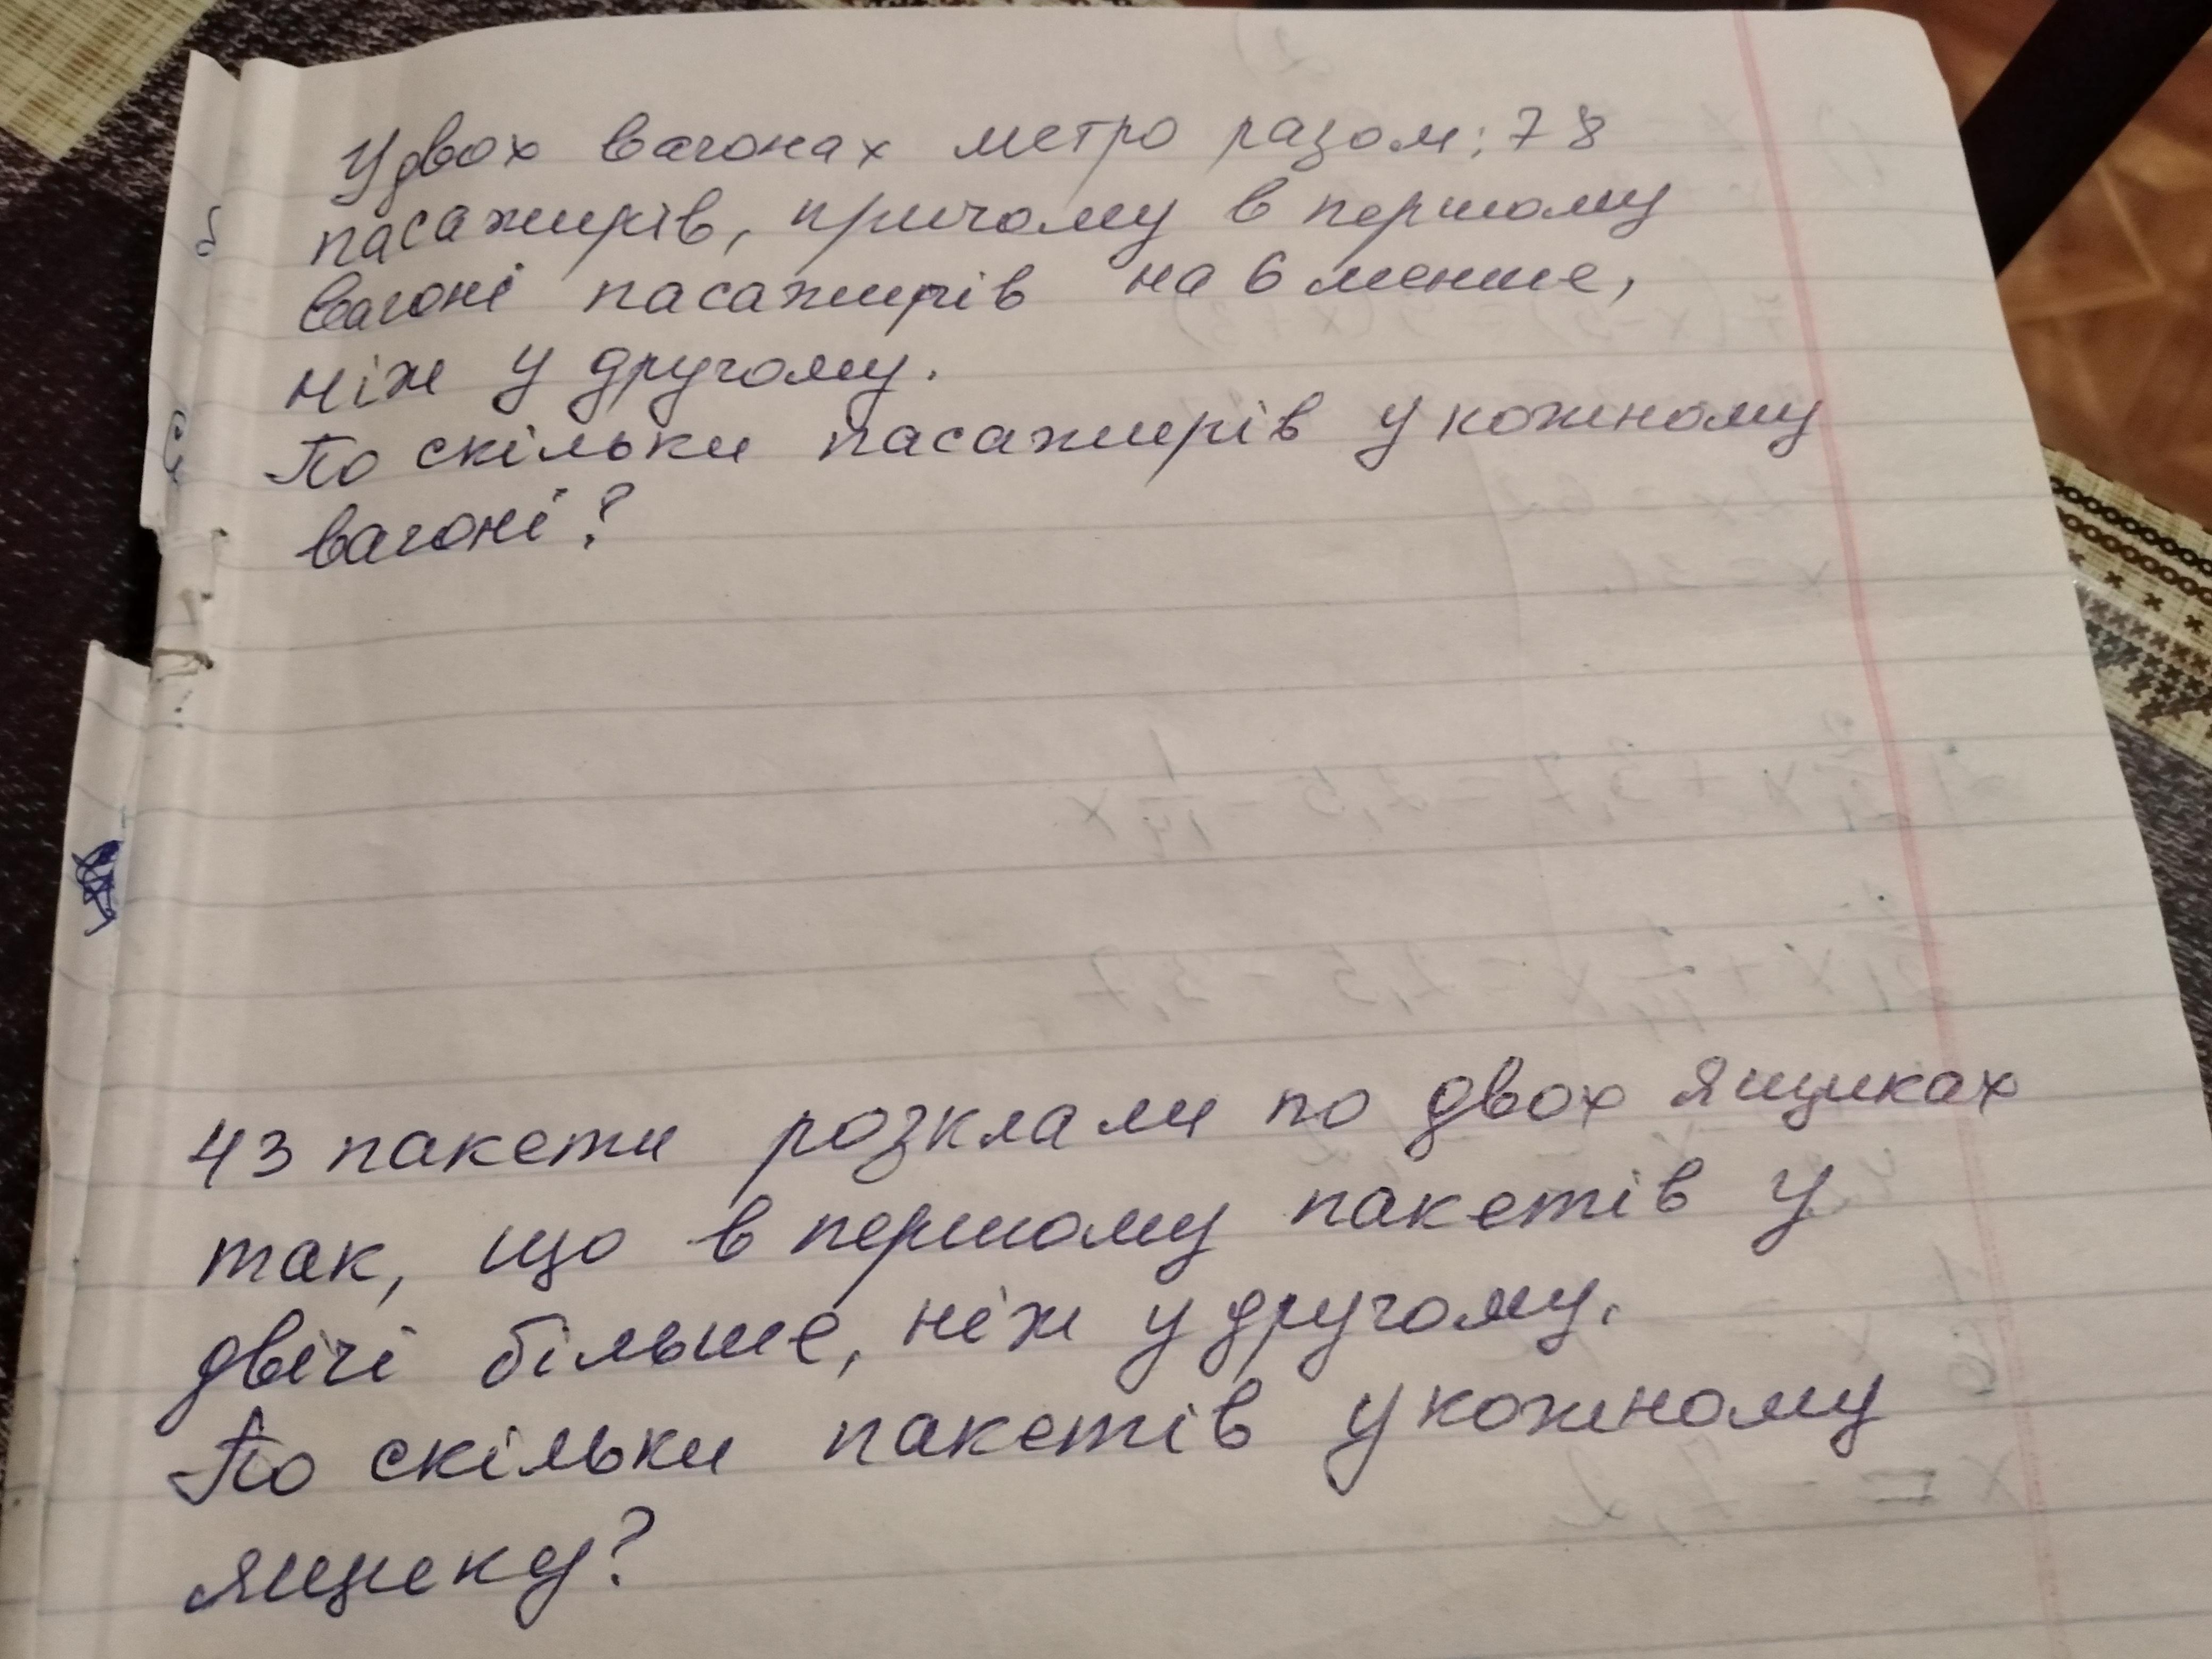 У двох вагонах метро разом: 78
пасажирів, причому в першому
вагоні пасажирів на 6 менше,
ніж у другому.
По скільки пасажирів у кожному
вагоні?
43 пакети розклали по двох ящиках
так, що в першому пакетів у
двічі більше, ніж у другому.
По скільки пакетів у кожному
ящику?